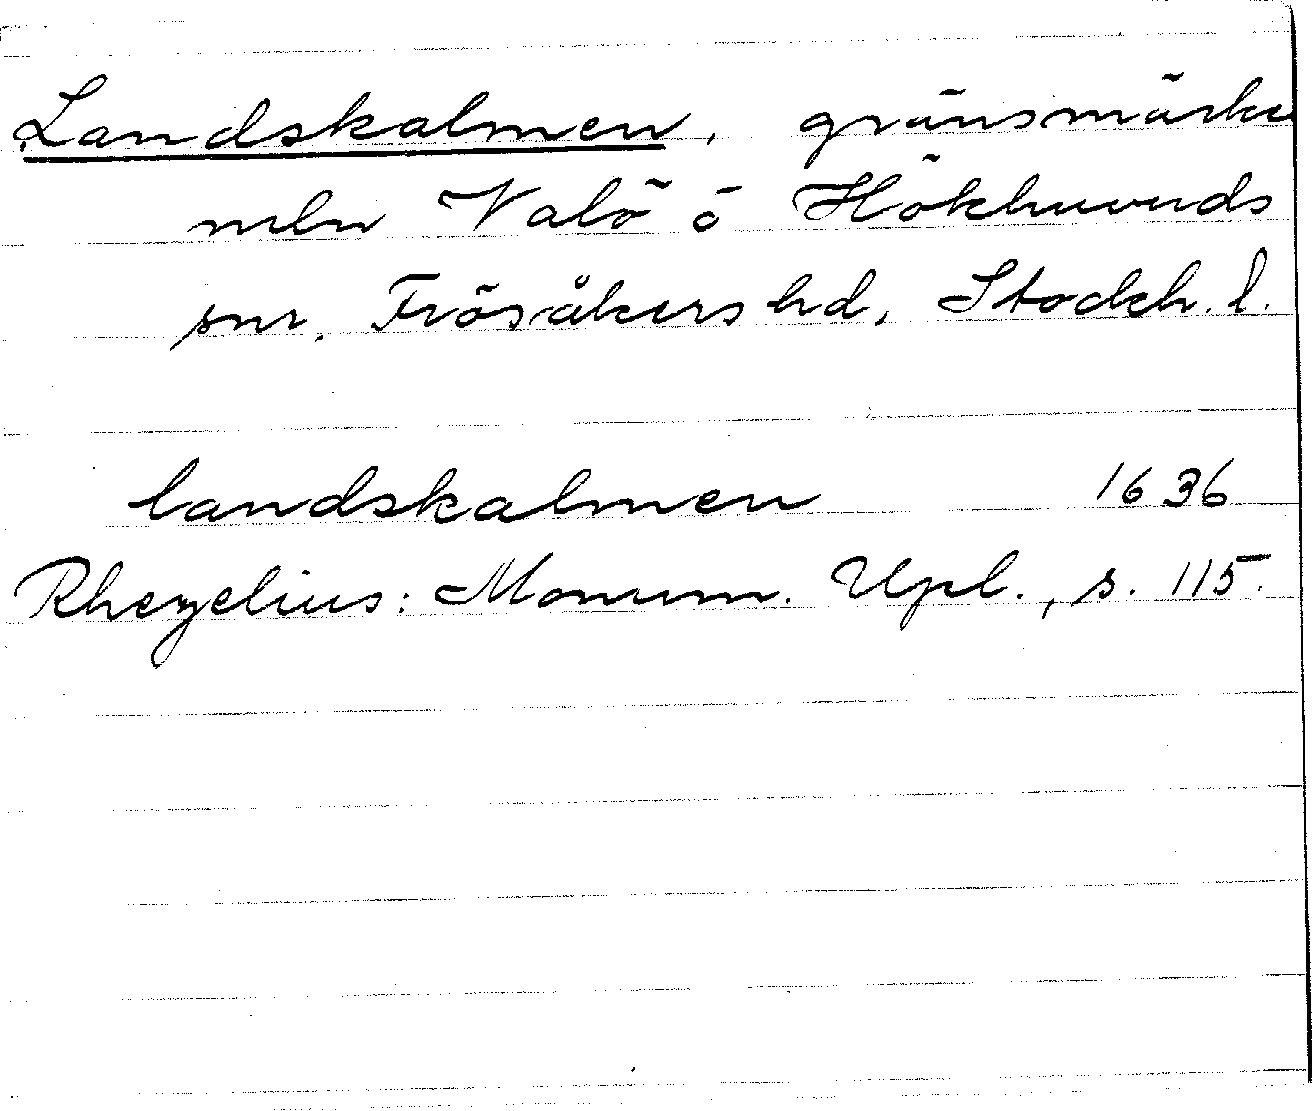 Landskalmen, gränsmärke
mln Valö o Hökhuvuds
snr, Frösåkers hd, Stockh. l.
landskalmen 1636
Rhezelius: Monum. Upl., s. 115.